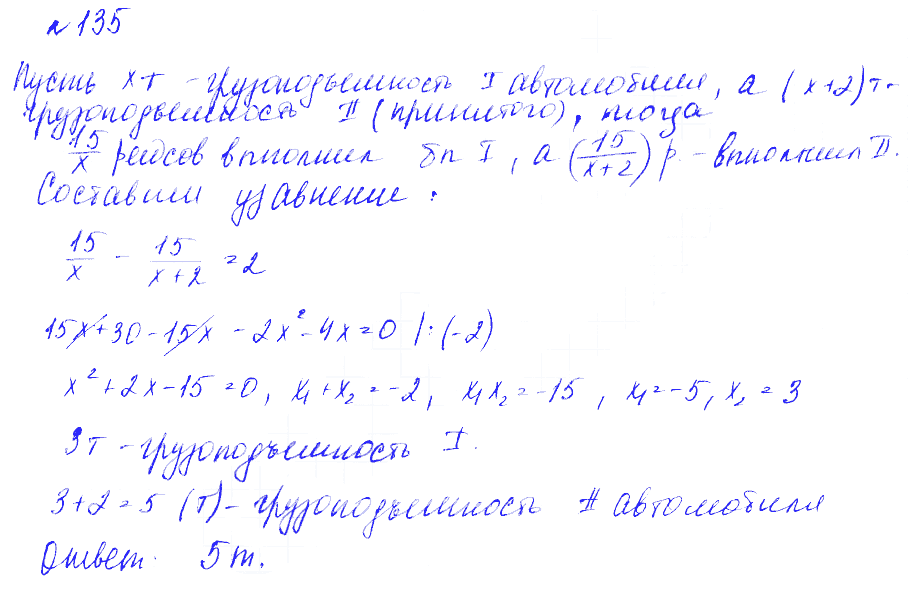 №135
Пусть x т - грузоподъемность I автомобиля, а (x+2) т -
грузоподъемность II (принятого), тогда
15/x рейсов выполнил бы I, а (15/(x+2)) р. - выполнил II.
Составим уравнение:
15/x - 15/(x+2) = 2
15x+30-15x-2x²-4x=0 |:(-2)
x²+2x-15=0, x₁+x₂=-2, x₁x₂=-15, x₁=-5, x₂=3
3т - грузоподъемность I.
3+2=5 (т) - грузоподъемность II автомобиля
Ответ. 5т.